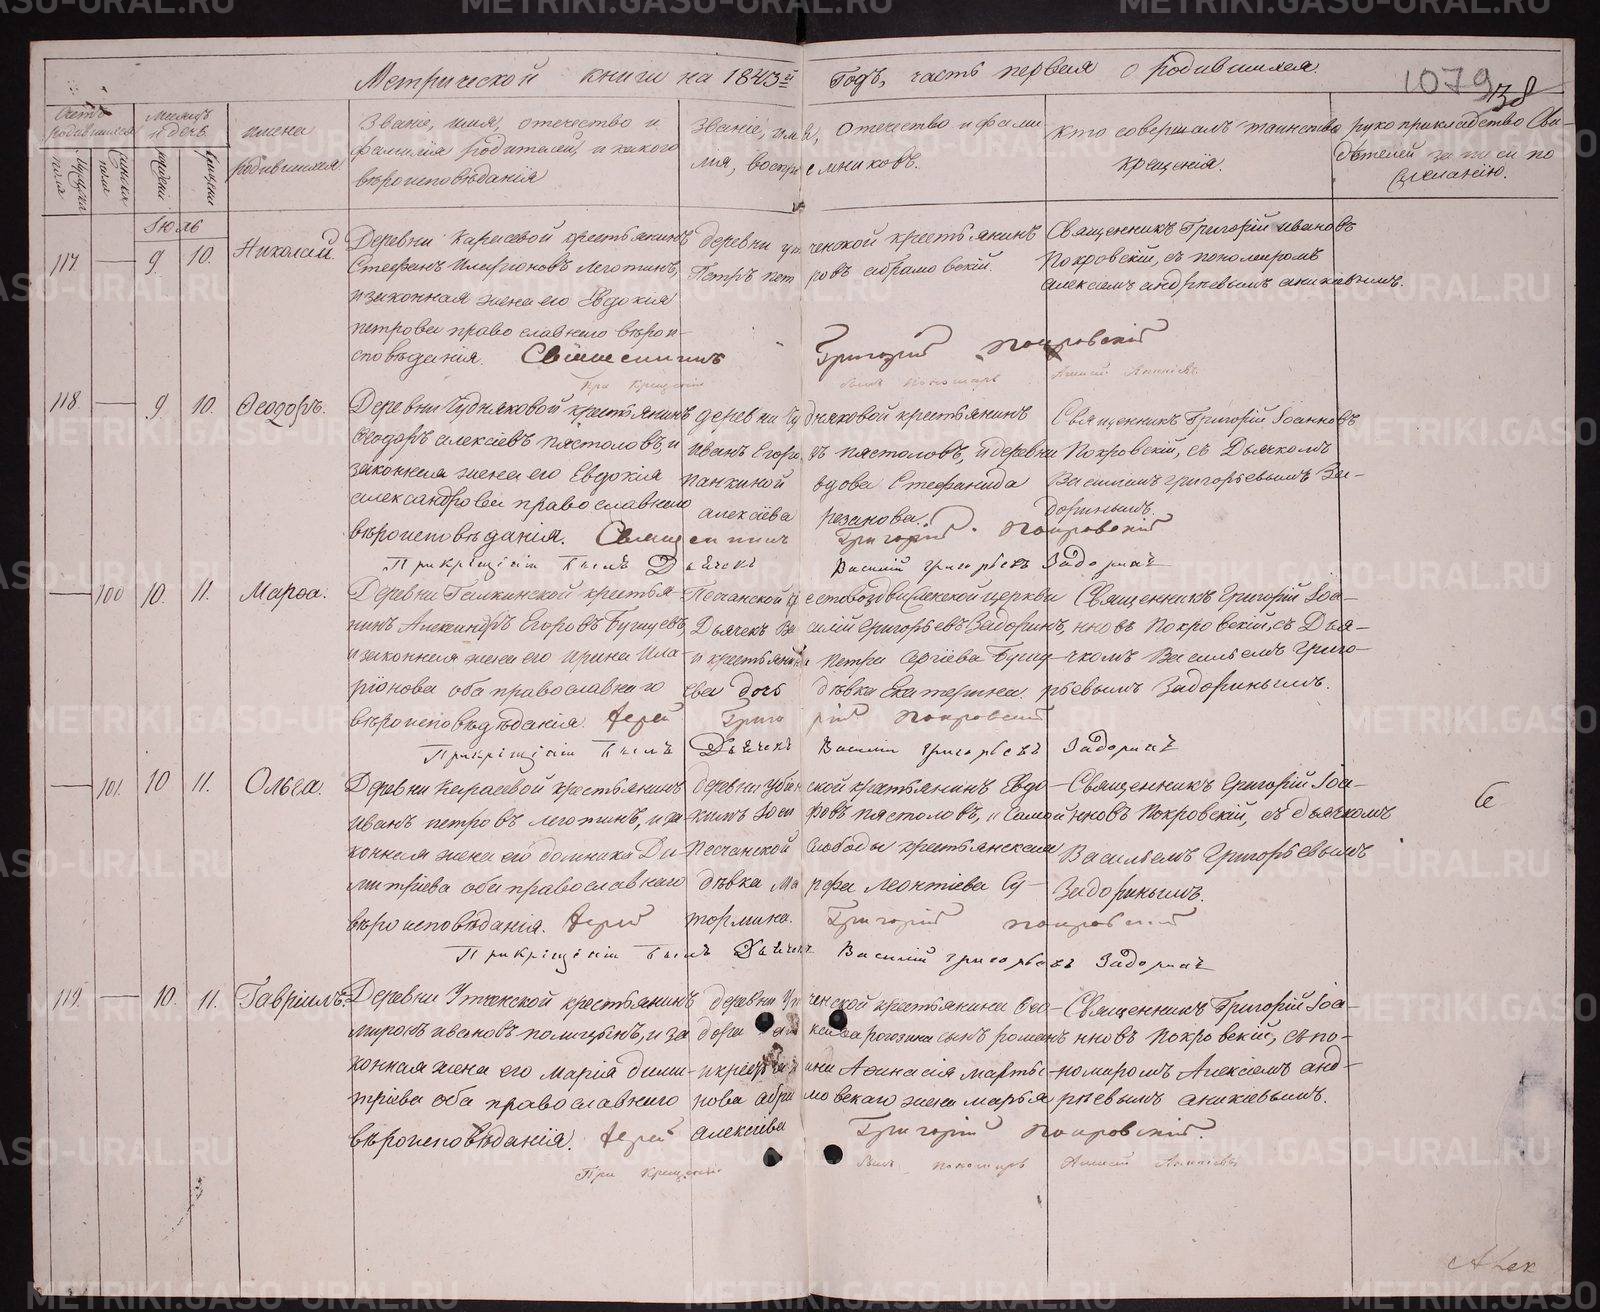 Метрической книги на 1843й Годъ, часть первая о родившихся.
1079
38
Счетъ родившихся
Мѣсяцъ и день
имена родившихся
Званіе, имя, отечество и фамилія родителей, и какого вѣроисповѣданія
Званіе, имя, отечество и фамилія, воспріемниковъ.
кто совершалъ таинство крещенія.
рукоприкладство свидѣтелей записи по желанію.
мужеска пола
женска пола
рожденія
крещенія
Іюль
117. — 9. 10. Николай.
Деревни Карасевой крестьянинъ
Стефанъ Иларіоновъ Леготинъ,
и законная жена его Евдокія
петрова православнаго вѣрои-
сповѣданія. Священникъ Григорій Покровскій
деревни ут ченской крестьянинъ
Петръ пет ровъ абрамовскій.
Священникъ Григорій ивановъ
Покровскій, съ пономаремъ
алексіемъ андреевымъ аникіевымъ.
При Крещеніи былъ пономарь Алексій Аникіевъ
118 — 9 10. Ѳеодоръ.
Деревни Чудняковой крестьянинъ
Ѳеодоръ алексіевъ пястоловъ, и
законная жена его Евдокія
александрова православнаго
вѣроисповѣданія. Священникъ Григорій Покровскій
деревни Чу дняковой крестьянинъ
Иванъ Егоро въ пястоловъ, и деревни
панкиной вдова Стефанида
алексіева резанова.
Священникъ Григорій Іоанновъ
Покровскій, съ Дьячкомъ
Василіемъ григорьевымъ За-
доринымъ.
При крещеніи былъ Дьячекъ Василій григорьевъ Задоринъ
— 100 10. 11. Марѳа.
Деревни Галкинской крестья-
нинъ Александръ Егоровъ Бугуевъ,
и законная жена его Ирина Ила-
ріонова оба православнаго
вѣроисповѣдѣданія. Іерей Григорій Покровскій
Песчанской Кр естовоздвиженской церкви
Дьячекъ Ва силій Григорьевъ Задоринъ,
и крестьянина петра Сергіева Бугу-
ева дочь дѣвка Екатерина
Священникъ Григорій Іоа-
нновъ Покровскій, съ Дья-
чкомъ Васильемъ Григо-
рьевымъ Задоринымъ.
При крещеніи былъ Дьячекъ Василій григорьевъ Задоринъ
— 101. 10 11. Ольга.
Деревни Карасевой крестьянинъ
Иванъ петровъ леготинъ, и за-
конная жена его домника Ди-
митріева оба православнаго
вѣроисповѣданія. Іерей Григорій Покровскій
деревни ской крестьянинъ Евдо-
кимъ Іоси фовъ пястоловъ, и самой
Песчанской слободы крестьянская
дѣвка Ма рѳа Леонтіева Су-
тормина.
Священникъ Григорій Іоа-
нновъ Покровскій, съ дьячкомъ
Васильемъ Григорьевымъ
Задоринымъ.
При крещеніи былъ Дьячекъ Василій григорьевъ Задоринъ
119. — 10. 11. Гавріилъ.
Деревни Утченской крестьянинъ
миронъ ивановъ, и за
конная жена его Марія дими-
тріева оба православнаго
вѣроисповѣданія. Іерей Григорій Покровскій.
деревни Ут ченской крестьянина Ѳео-
дора рогозина сынъ романъ
и крестьянина Аѳанасія Марты-
нова абра мовскаго жена марья
алексіева
Священникъ Григорій Іоа-
нновъ Покровскій, съ по-
номаремъ Алексіемъ анд-
реевымъ аникіевымъ.
При Крещеніи былъ пономарь Алексій Аникіевъ
METRIKI.GASO-URAL.RU